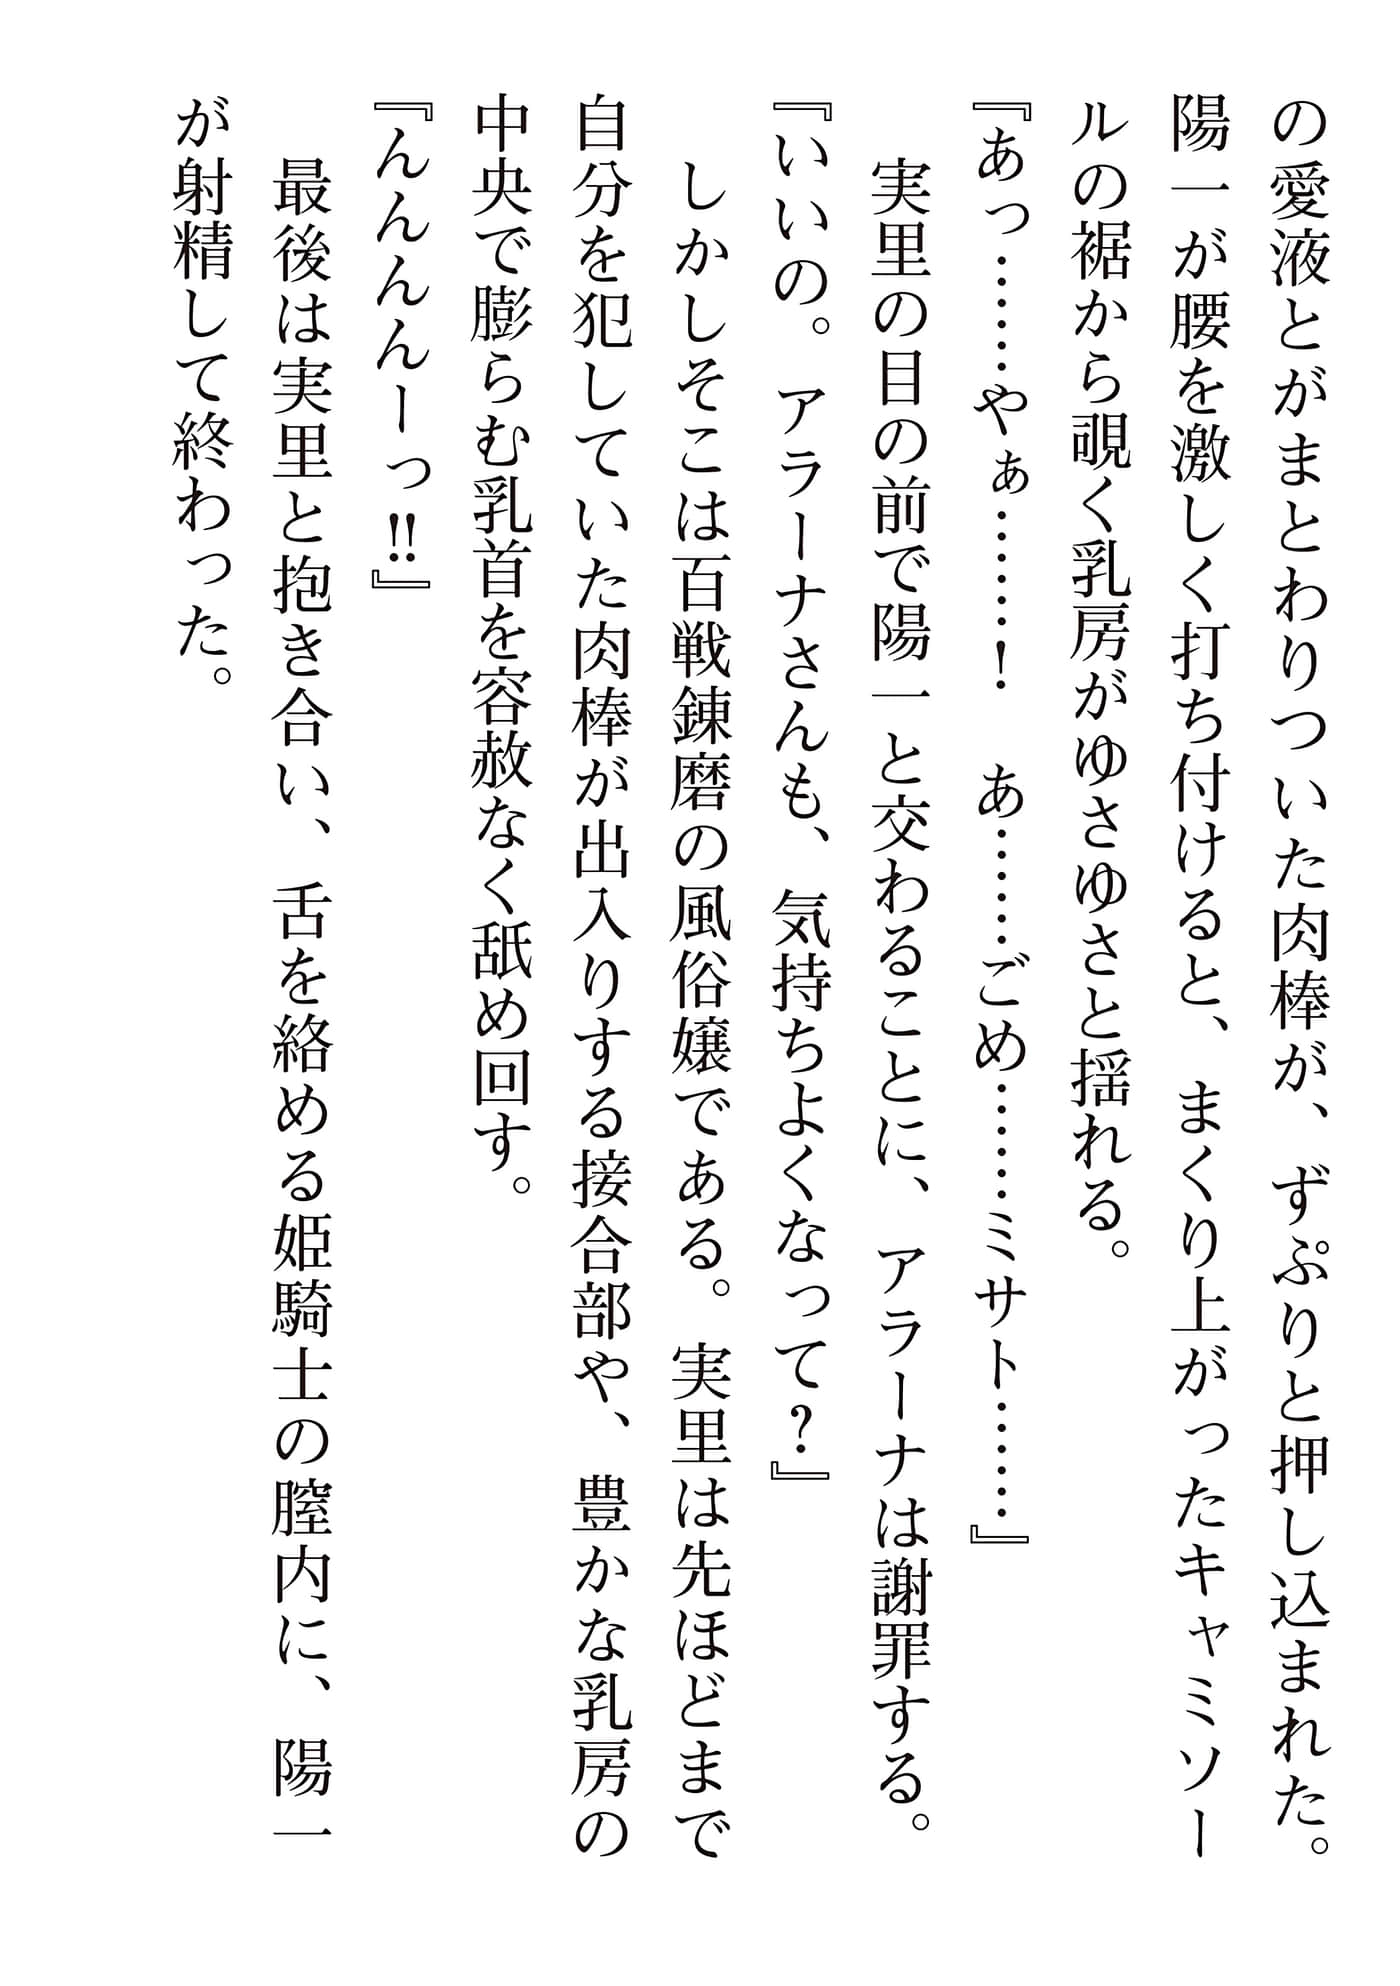 の愛液とがまとわりついた肉棒が、ずぷりと押し込まれた。
陽一が腰を激しく打ち付けると、まくり上がったキャミソー
ルの裾から覗く乳房がゆさゆさと揺れる。
『あっ………やぁ………！　あ………ごめ………ミサト………』
　実里の目の前で陽一と交わることに、アラーナは謝罪する。
『いいの。アラーナさんも、気持ちよくなって？』
　しかしそこは百戦錬磨の風俗嬢である。実里は先ほどまで
自分を犯していた肉棒が出入りする接合部や、豊かな乳房の
中央で膨らむ乳首を容赦なく舐め回す。
『んんんんーっ‼』
　最後は実里と抱き合い、舌を絡める姫騎士の膣内に、陽一
が射精して終わった。